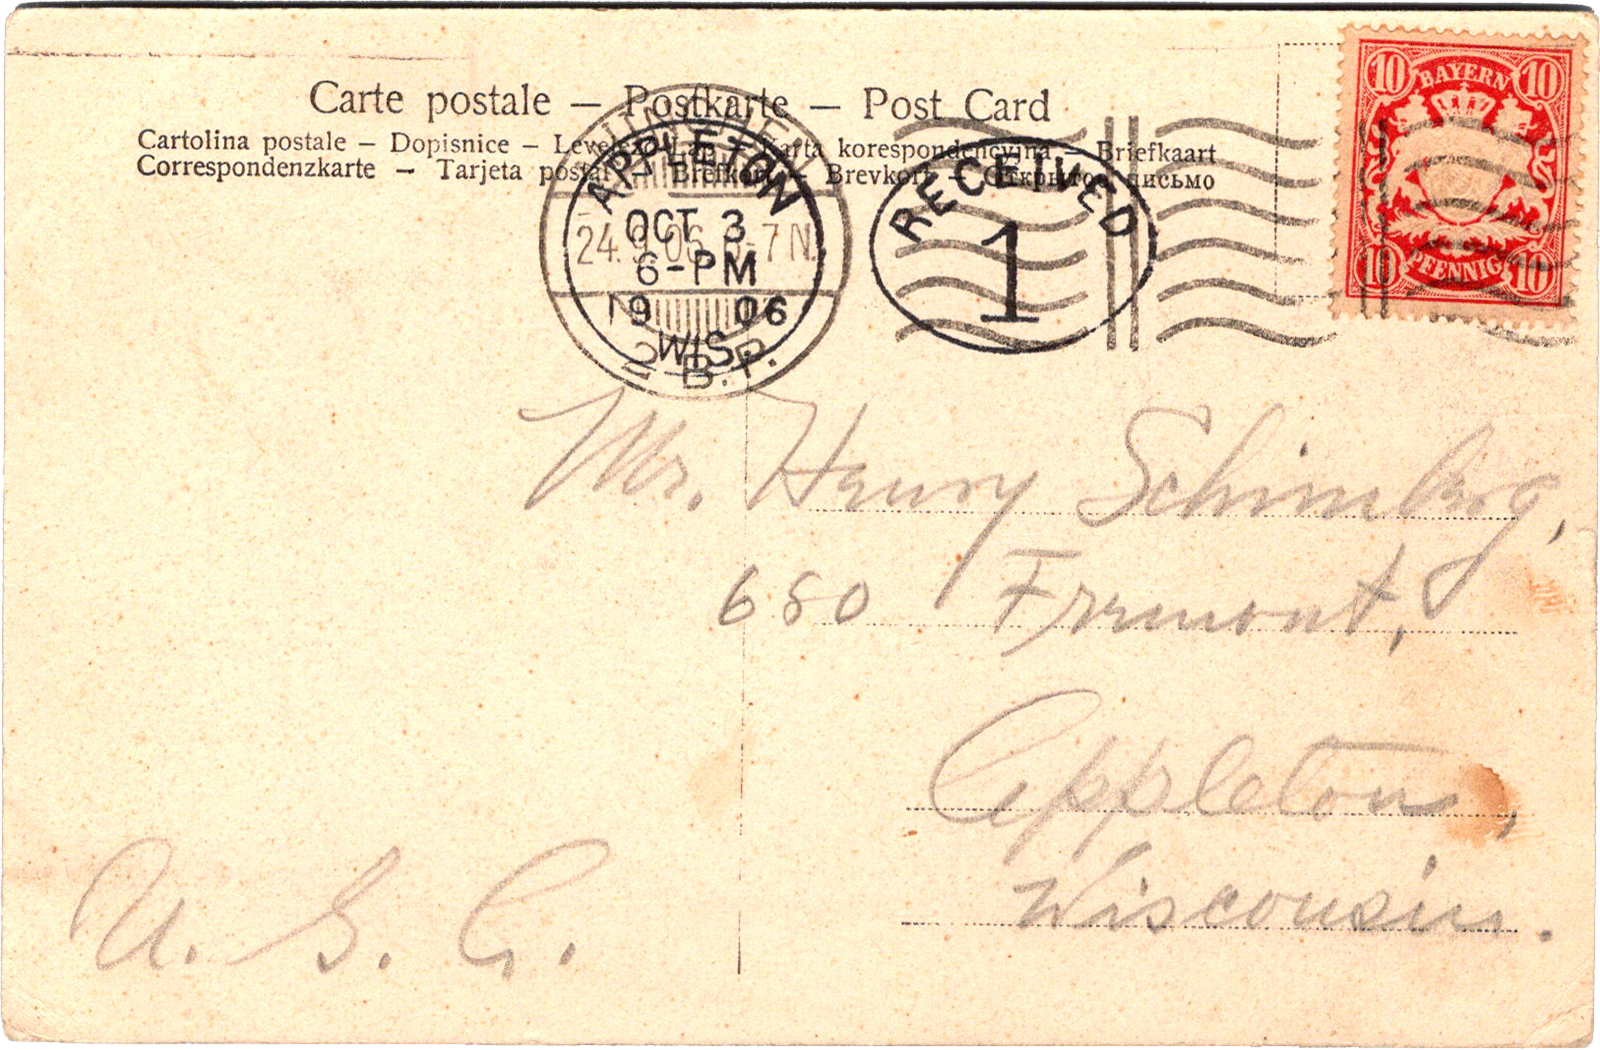 Carte postale – Postkarte – Post Card
Cartolina postale – Dopisnice – Levelező-Lap – Karta korespondencyjna – Briefkaart
Correspondenzkarte – Tarjeta postal – Brefkort – Brevkort – Открытое письмо
10 BAYERN 10
10 PFENNIG 10
APPLETON
OCT 3
6-PM
1906
WIS.
24.9.06. 6-7 N.
2 B.P.
RECEIVED
1
Mr. Henry Schimberg,
680 Fremont,
Appleton,
Wisconsin.
U. S. A.